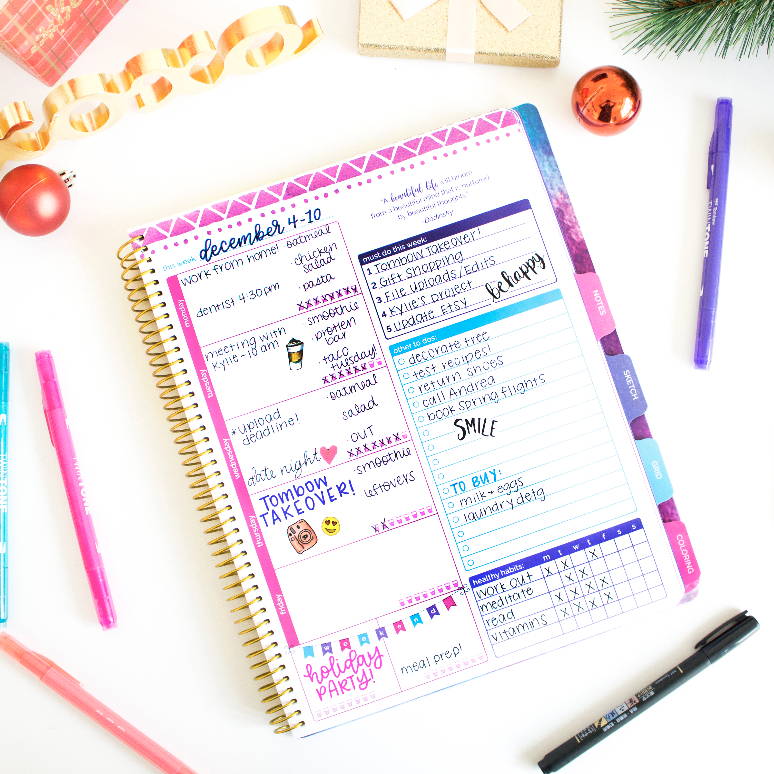 "A beautiful life
by beautiful thoughts."
this week: december 4-10
monday
work from home!
dentist 4:30pm
oatmeal
chicken
salad
pasta
xxxxxxxx
tuesday
meeting with
kylie - 10 am
smoothie
protien
bar
taco
tuesday!
xxxxxx
wednesday
*upload
deadline!
date night
oatmeal
salad
OUT
xxxxxxx
thursday
Tombow
TAKEOVER!
smoothie
leftovers
xx
friday
weekend
holiday
PARTY!
meal prep!
must do this week:
1 Tombow Takeover!
2 Gift Shopping
3 File uploads/Edits
4 Kylie's project
5 update Etsy
be happy
other to dos:
decorate tree
test recipes!
return shoes
call Andrea
book spring flights
SMILE
TO BUY:
milk + eggs
laundry detg
healthy habits: m t w t f s s
work out x x x
meditate x x
read x x x x
vitamins x x x x
NOTES
SKETCH
GRID
COLORING
TWINTONE
TWINTONE